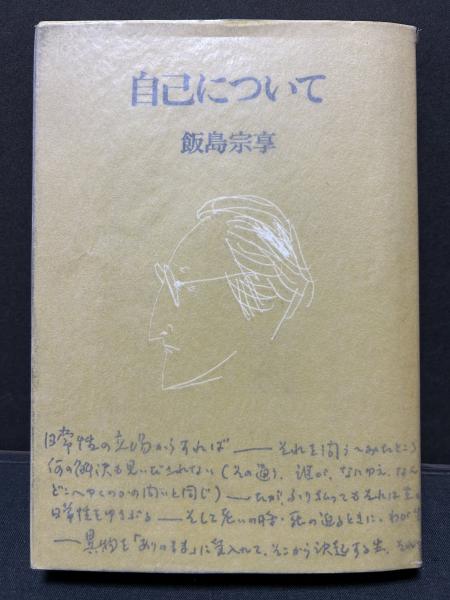 自己について
飯島宗享
日常性の立場からすれば——それを問うてみたところ
何の解決も見いだされない(その通り、誰が、なにゆえ、なん
どこへゆくのかの問いと同じ)——だが、ふりはらってもそれは
日常性をゆさぶる——そして老いの時・死の迫るときに、わが
——異物を「ありのまま」に受入れて、そこから決起する